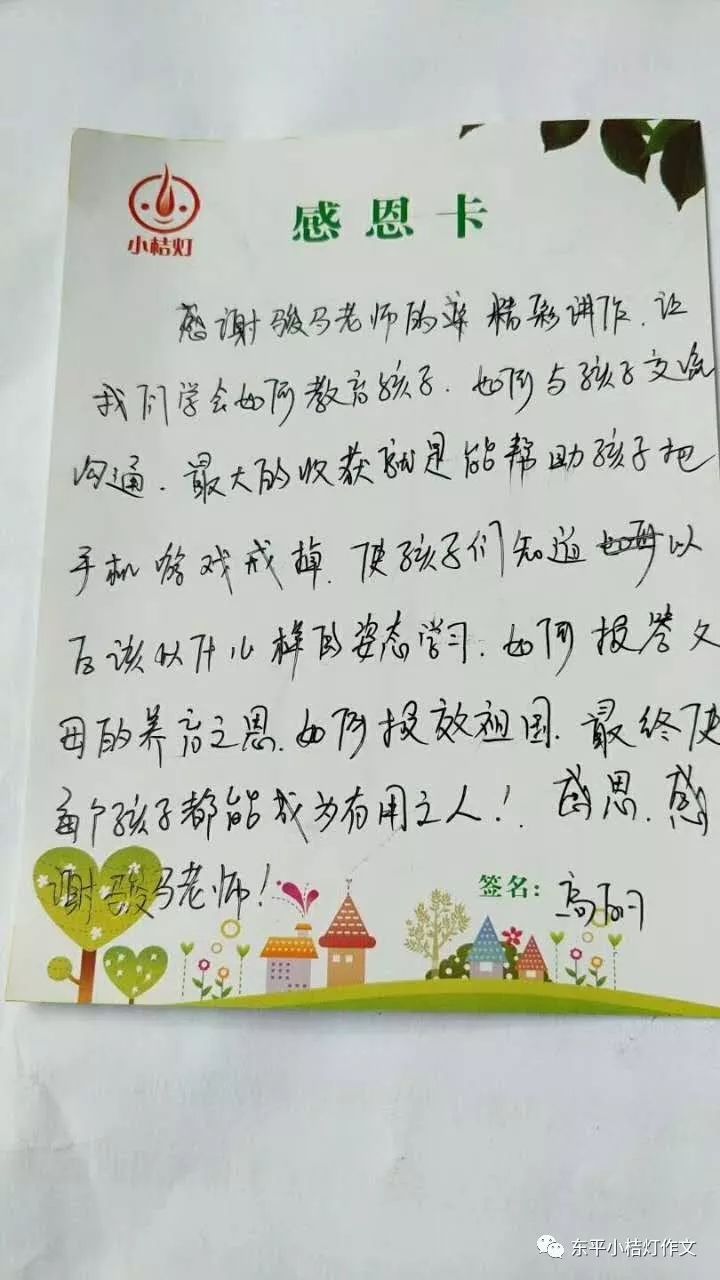 小桔灯
感恩卡
感谢骏马老师的 精彩讲作，让
我们学会如何教育孩子．如何与孩子交流
沟通．最大的收获就是能帮助孩子把
手机游戏戒掉．使孩子们知道 以
后该以什么样的姿态学习．如何报答父
母的养育之恩．如何报效祖国．最终使
每个孩子都能成为有用之人！感恩．感
谢骏马老师！
签名：高
东平小桔灯作文